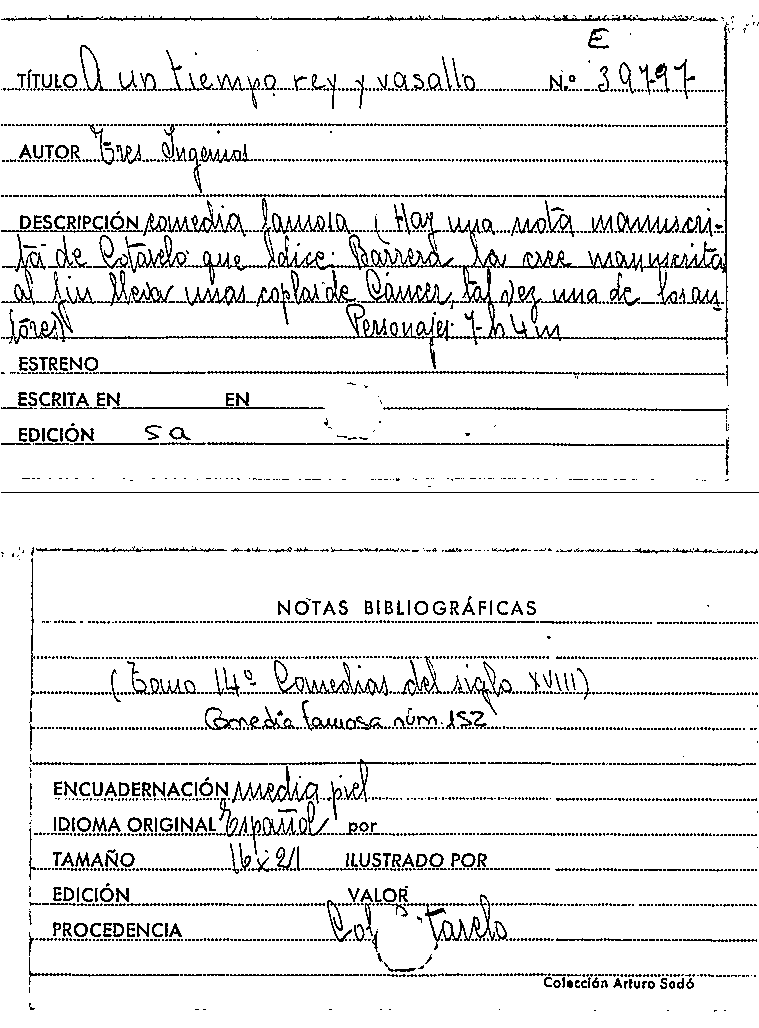 E
TÍTULO A un tiempo rey y vasallo N.º 39797
AUTOR Tres Ingenios
DESCRIPCIÓN comedia famosa (Hay una nota manuscri-
ta de Cotarelo que dice: Barrera la cree manuscrita
al fin lleva unas coplas de Cáncer, tal vez uno de los au
tores) Personajes 7 h 4 m
ESTRENO
ESCRITA EN EN
EDICIÓN s a
NOTAS BIBLIOGRÁFICAS
(Tomo 14º Comedias del siglo XVIII)
Comedia famosa núm. 152
ENCUADERNACIÓN media piel
IDIOMA ORIGINAL Español por
TAMAÑO 16 x 21 ILUSTRADO POR
EDICIÓN VALOR
PROCEDENCIA Col tarelo
Colección Arturo Sedó